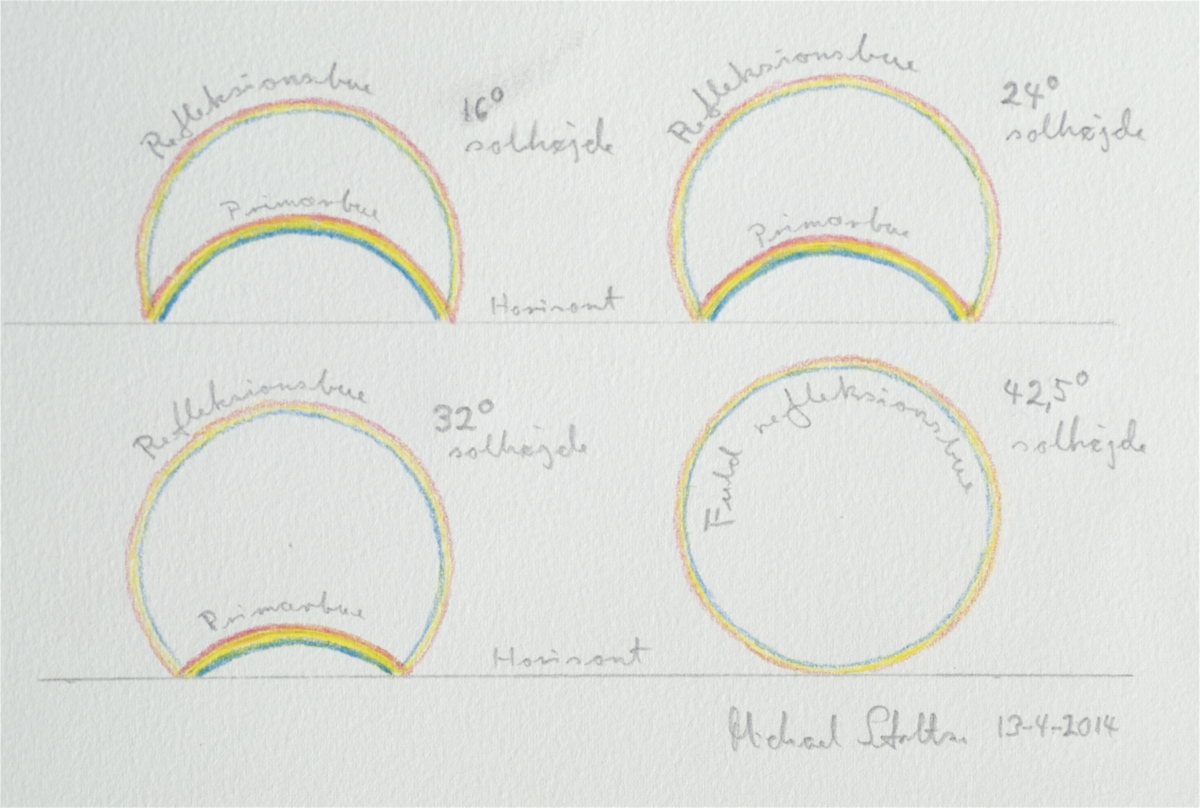 Refleksionsbue
16°
solhøjde
Primærbue
Refleksionsbue
24°
solhøjde
Primærbue
Horisont
Refleksionsbue
32°
solhøjde
Primærbue
Fuld refleksionsbue
42,5°
solhøjde
Horisont
Michael 13-4-2014